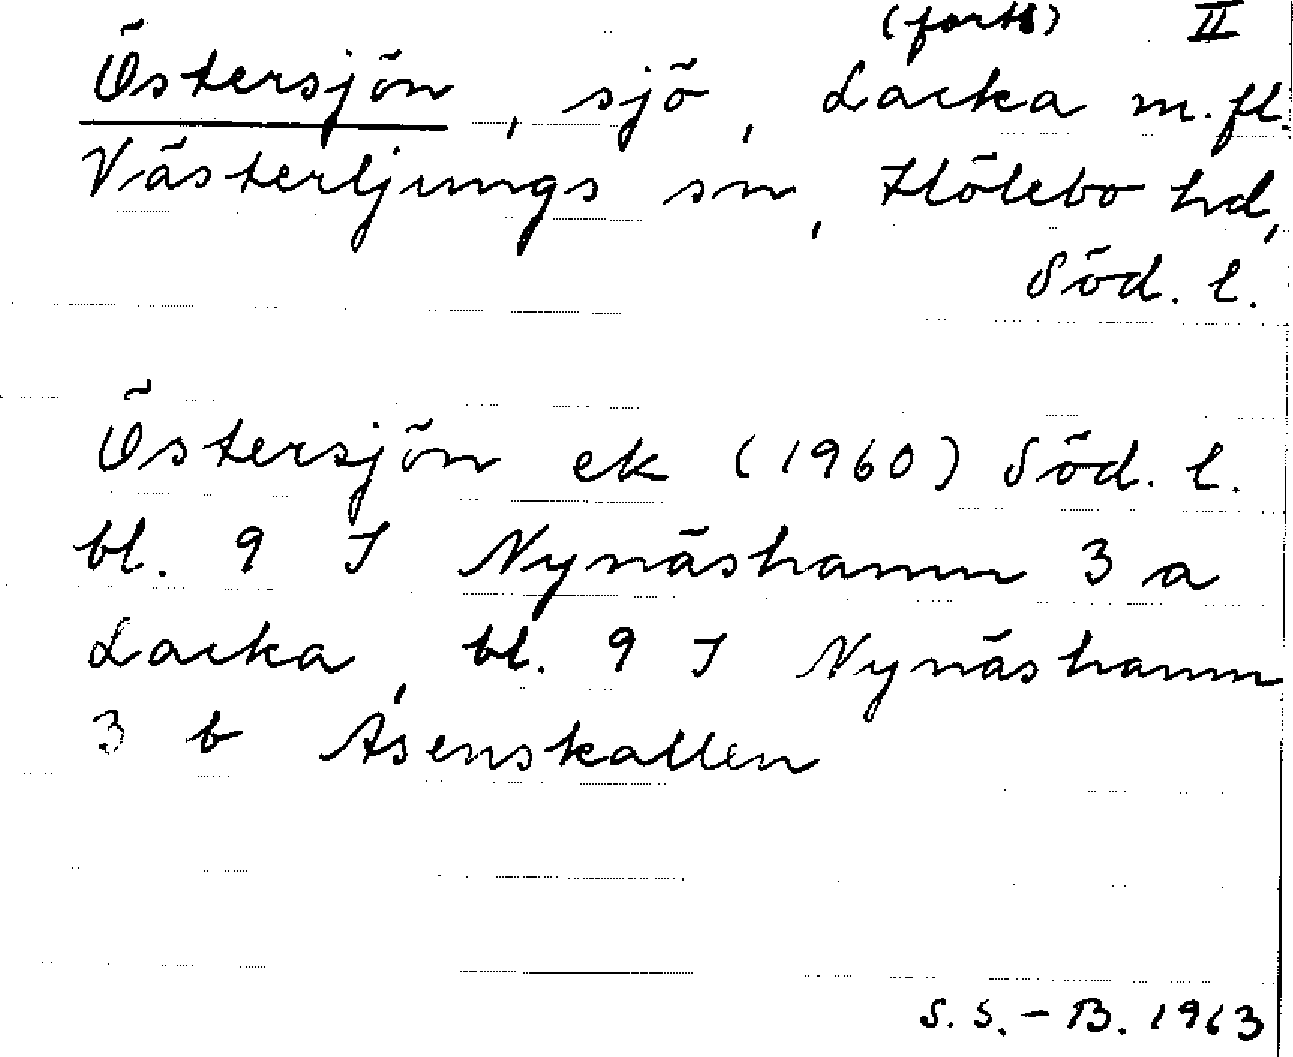 (forts) II
Östersjön, sjö, Lacka m.fl.
Västerljungs sn, Hölebo hd,
Söd. l.
Östersjön ek (1960) Söd. l.
bl. 9 I Nynäshamn 3 a
Lacka, bl. 9 I Nynäshamn
3 b Åsenskallen
S.S.-B. 1963